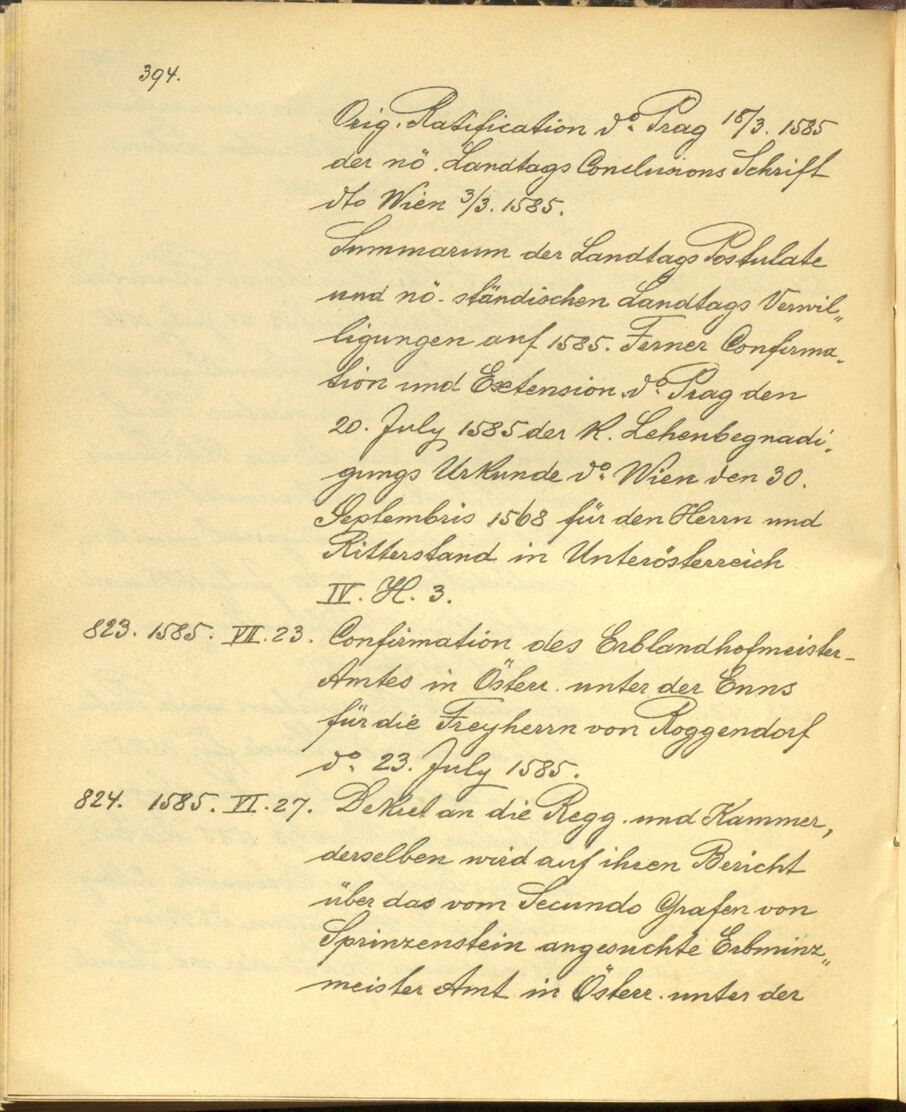 394.
Orig. Ratification do. Prag 18/3. 1585
der nö. Landtags Conclusions Schrift
dto Wien 3/3. 1585.
Summarum der Landtags Postulate
und nö. ständischen Landtags Verwil„
ligungen auf 1585. Ferner Confirma„
tion und Extension do. Prag den
20. July 1585 der K. Lehenbegnadi„
gungs Urkunde do. Wien den 30.
Septembris 1568 für den Herrn und
Ritterstand in Unterösterreich
IV. H. 3.
823. 1585. VII. 23. Confirmation des Erblandhofmeister-
Amtes in Österr. unter der Enns
für die Freyherrn von Roggendorf
do. 23. July 1585.
824. 1585. VI. 27. Dekret an die Regg. und Kammer,
derselben wird auf ihren Bericht
über das vom Secundo Grafen von
Sprinzenstein angesuchte Erbminz„
meister Amt in Österr. unter der